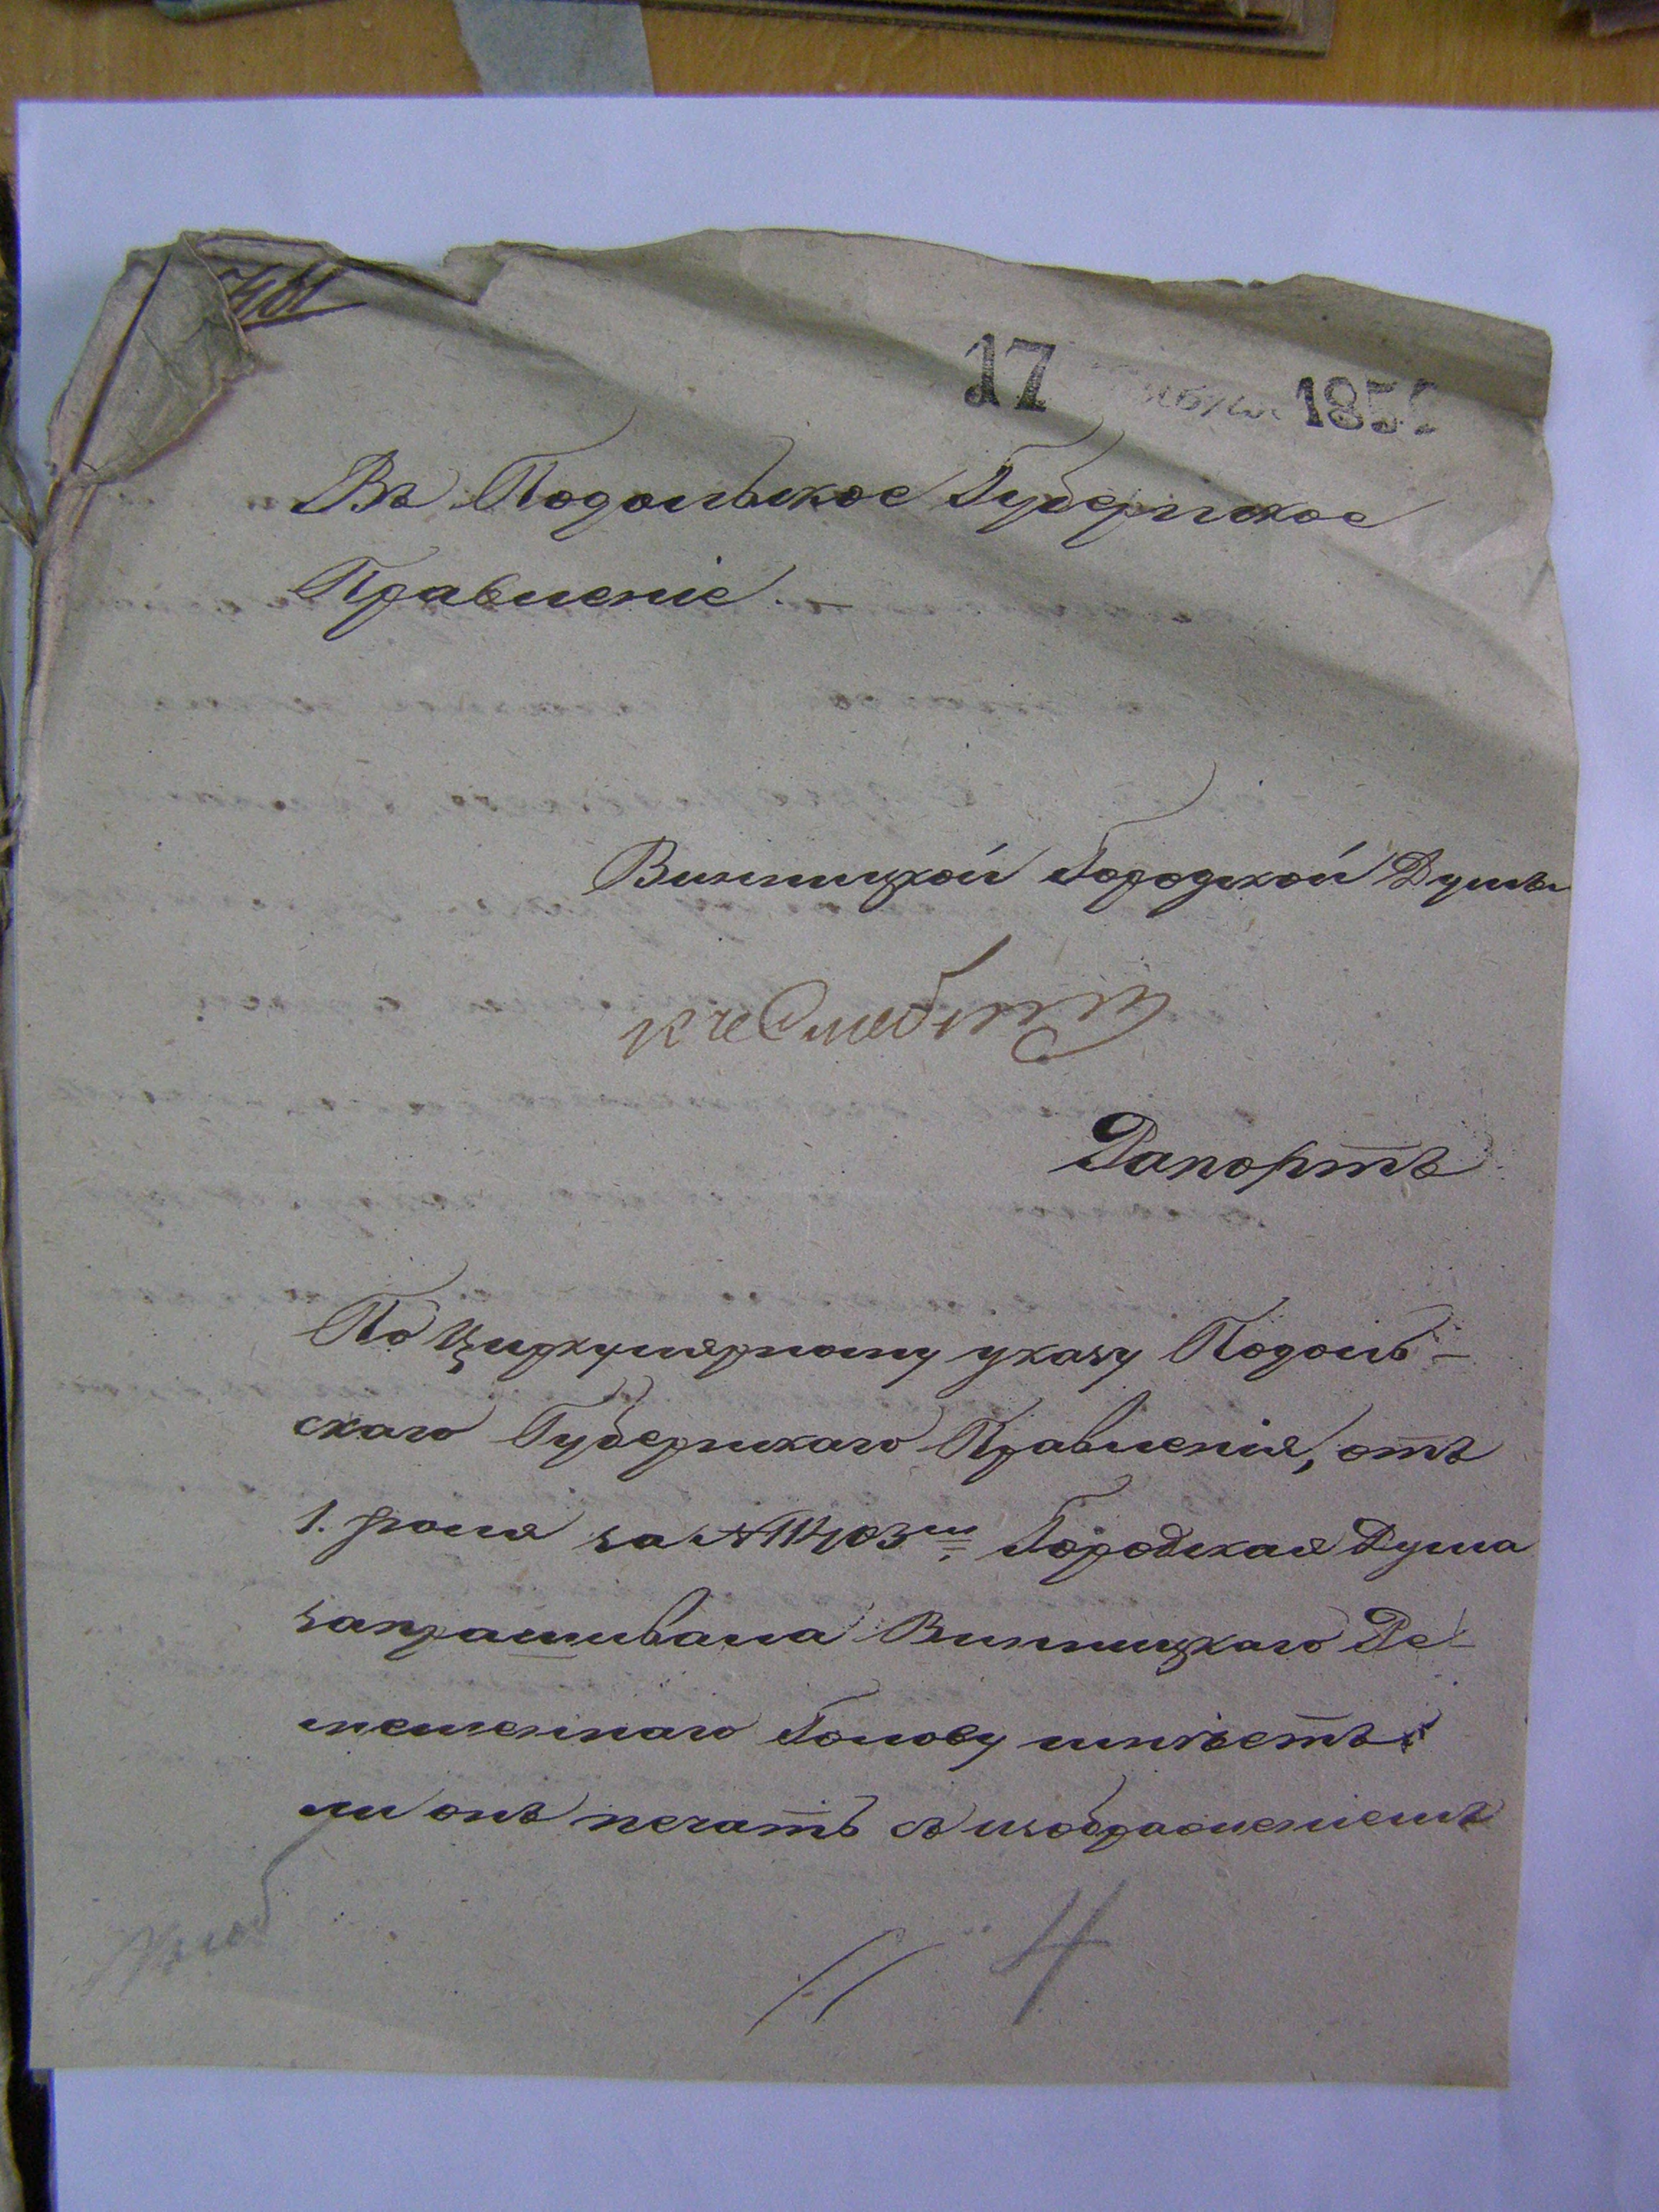 17 1851
Въ Подольское Губернское
Правленіе. —
Винницкой Городской Думы
Рапортъ
По Циркулярному указу Подоль-
скаго Губернскаго Правленія, отъ
1. Іюля за № 11403мъ, Городская Дума
запрашивала Винницкаго Ре-
месленнаго Голову имѣетъ
ли онъ печать съ изображеніемъ
4